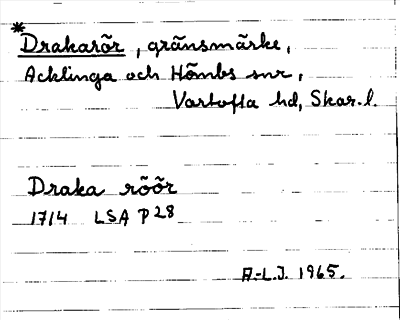 *
Drakarör, gränsmärke,
Acklinga och Hömbs snr,
Vartofta hd, Skar. l.
Draka röör
1714 LSA P28
A-L.J. 1965.